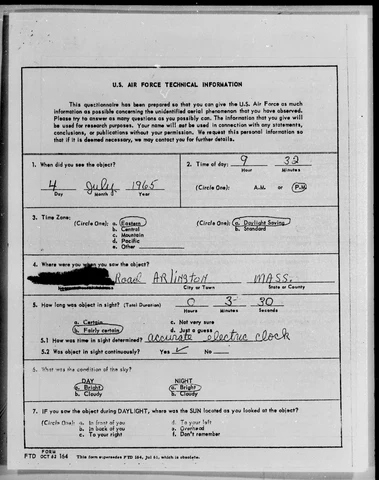 U.S. AIR FORCE TECHNICAL INFORMATION
This questionnaire has been prepared so that you can give the U.S. Air Force as much
information as possible concerning the unidentified aerial phenomenon that you have observed.
Please try to answer as many questions as you possibly can. The information that you give will
be used for research purposes. Your name will not be used in connection with any statements,
conclusions, or publications without your permission. We request this personal information so
that if it is deemed necessary, we may contact you for further details.
1. When did you see the object?
4 July 1965
Day Month Year
2. Time of day: 9 32
Hour Minutes
(Circle One): A.M. or P.M.
3. Time Zone:
(Circle One): a. Eastern
b. Central
c. Mountain
d. Pacific
e. Other
(Circle One): a. Daylight Saving
b. Standard
4. Where were you when you saw the object?
Road ARlINGTON MASS.
City or Town State or County
5. How long was object in sight? (Total Duration) 0 3 30
Hours Minutes Seconds
a. Certain c. Not very sure
b. Fairly certain d. Just a guess
5.1 How was time in sight determined? accurate electric clock
5.2 Was object in sight continuously? Yes ✓ No
6. What was the condition of the sky?
DAY NIGHT
a. Bright a. Bright
b. Cloudy b. Cloudy
7. IF you saw the object during DAYLIGHT, where was the SUN located as you looked at the object?
(Circle One): a. In front of you d. To your left
b. In back of you e. Overhead
c. To your right f. Don't remember
FORM
FTD OCT 62 164 This form supersedes FTD 164, Jul 61, which is obsolete.